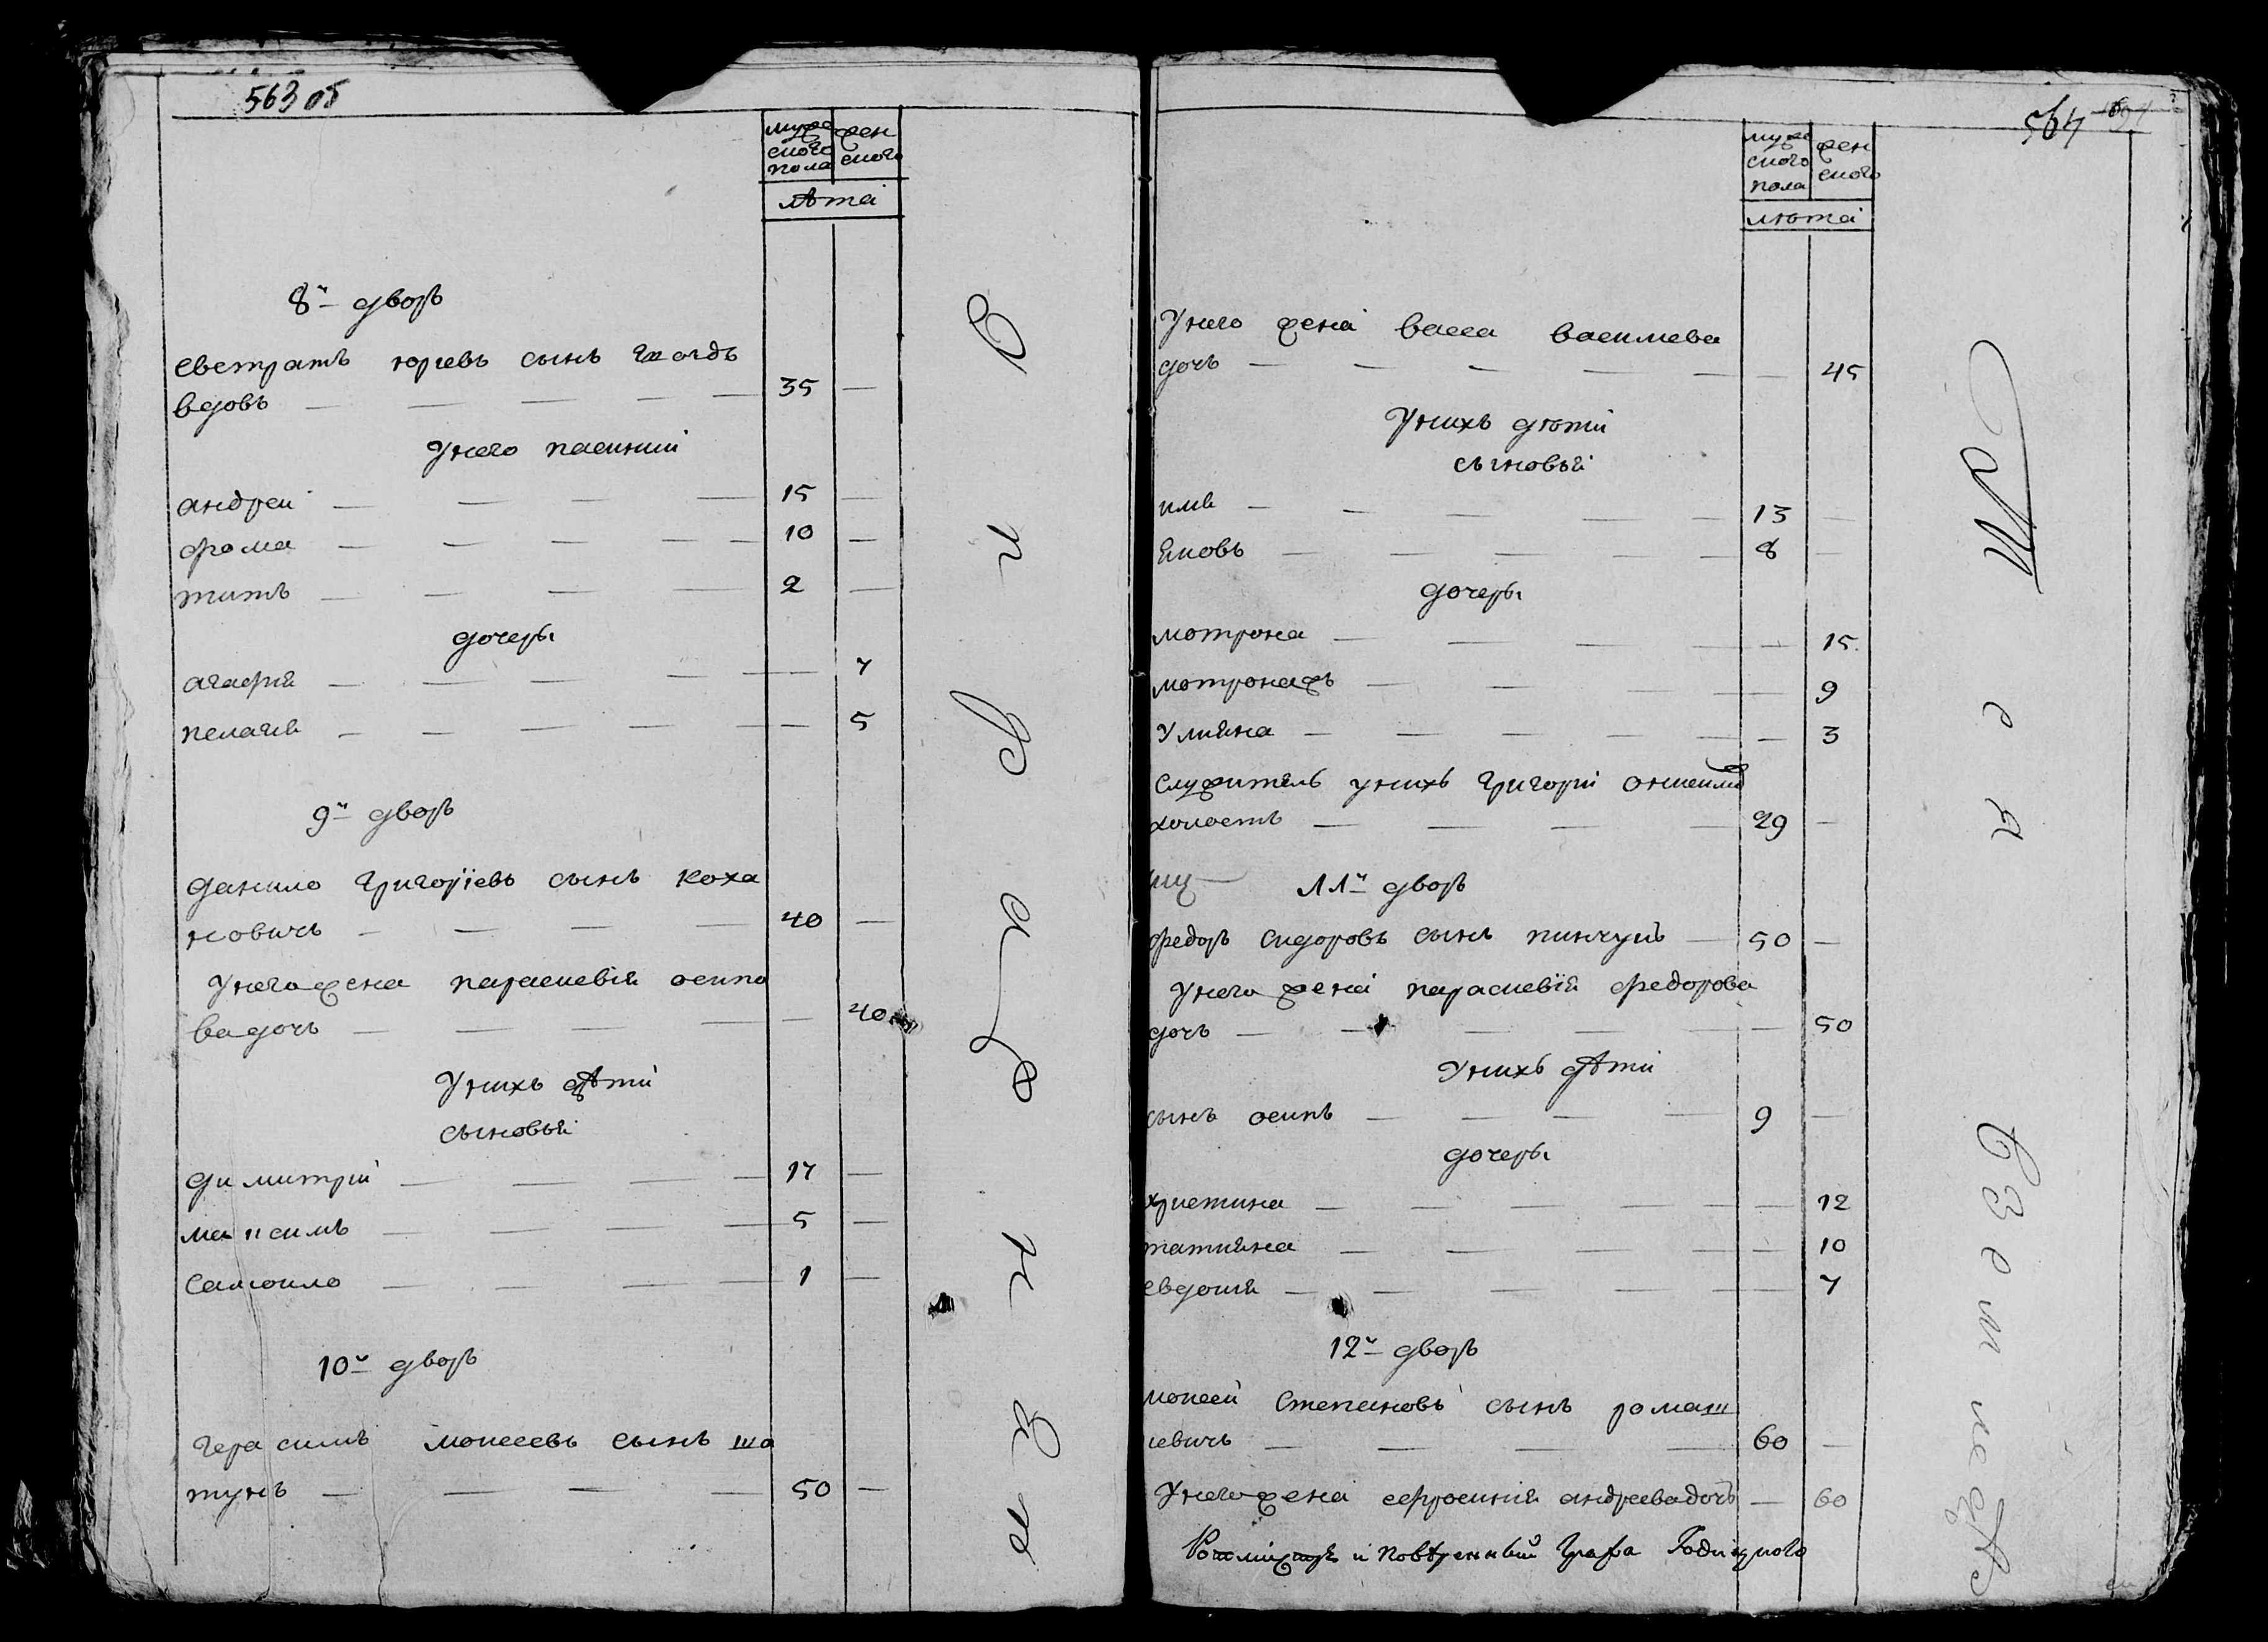 563 об
муже
ского
пола
жен
ского
лѣта
8й дворъ
Евстратъ юріевъ сынъ
вдовъ — 35 —
У него пасинки
андреи — 15 —
фома — 10 —
титъ — 2 —
дочеры
агафия — — 7
пелагея — — 5
9й дворъ
данило григоріевъ сынъ коха
новичъ — 40 —
У него жена параскевія осипо
ва дочъ — — 40
У нихъ дѣти
сыновья
димитрій — 17 —
максимъ — 5 —
самоило — 1 —
10й дворъ
герасимъ моисеевъ сынъ ша
тунъ — 50 —
564
муже
ского
пола
жен
ского
лѣта
У него жена васса василева
дочъ — — 45
У нихъ дѣти
сыновья
илья — 13 —
яковъ — 8 —
дочеры
мотрона — — 15
мотронажъ — — 9
Улияна — — 3
служитель у нихъ григорій
холостъ — 29 —
11й дворъ
федоръ сидоровъ сынъ пинчукъ — 50 —
У него жена параскевія федорова
дочъ — — 50
У нихъ дѣти
сынъ осипъ — 9 —
дочеры
христина — — 12
татияна — — 10
евдокия — — 7
12й дворъ
моисей степановъ сынъ ромаш
кевичъ — 60 —
У него жена евфросиния андреева дочъ — 60
и повѣренный Графа